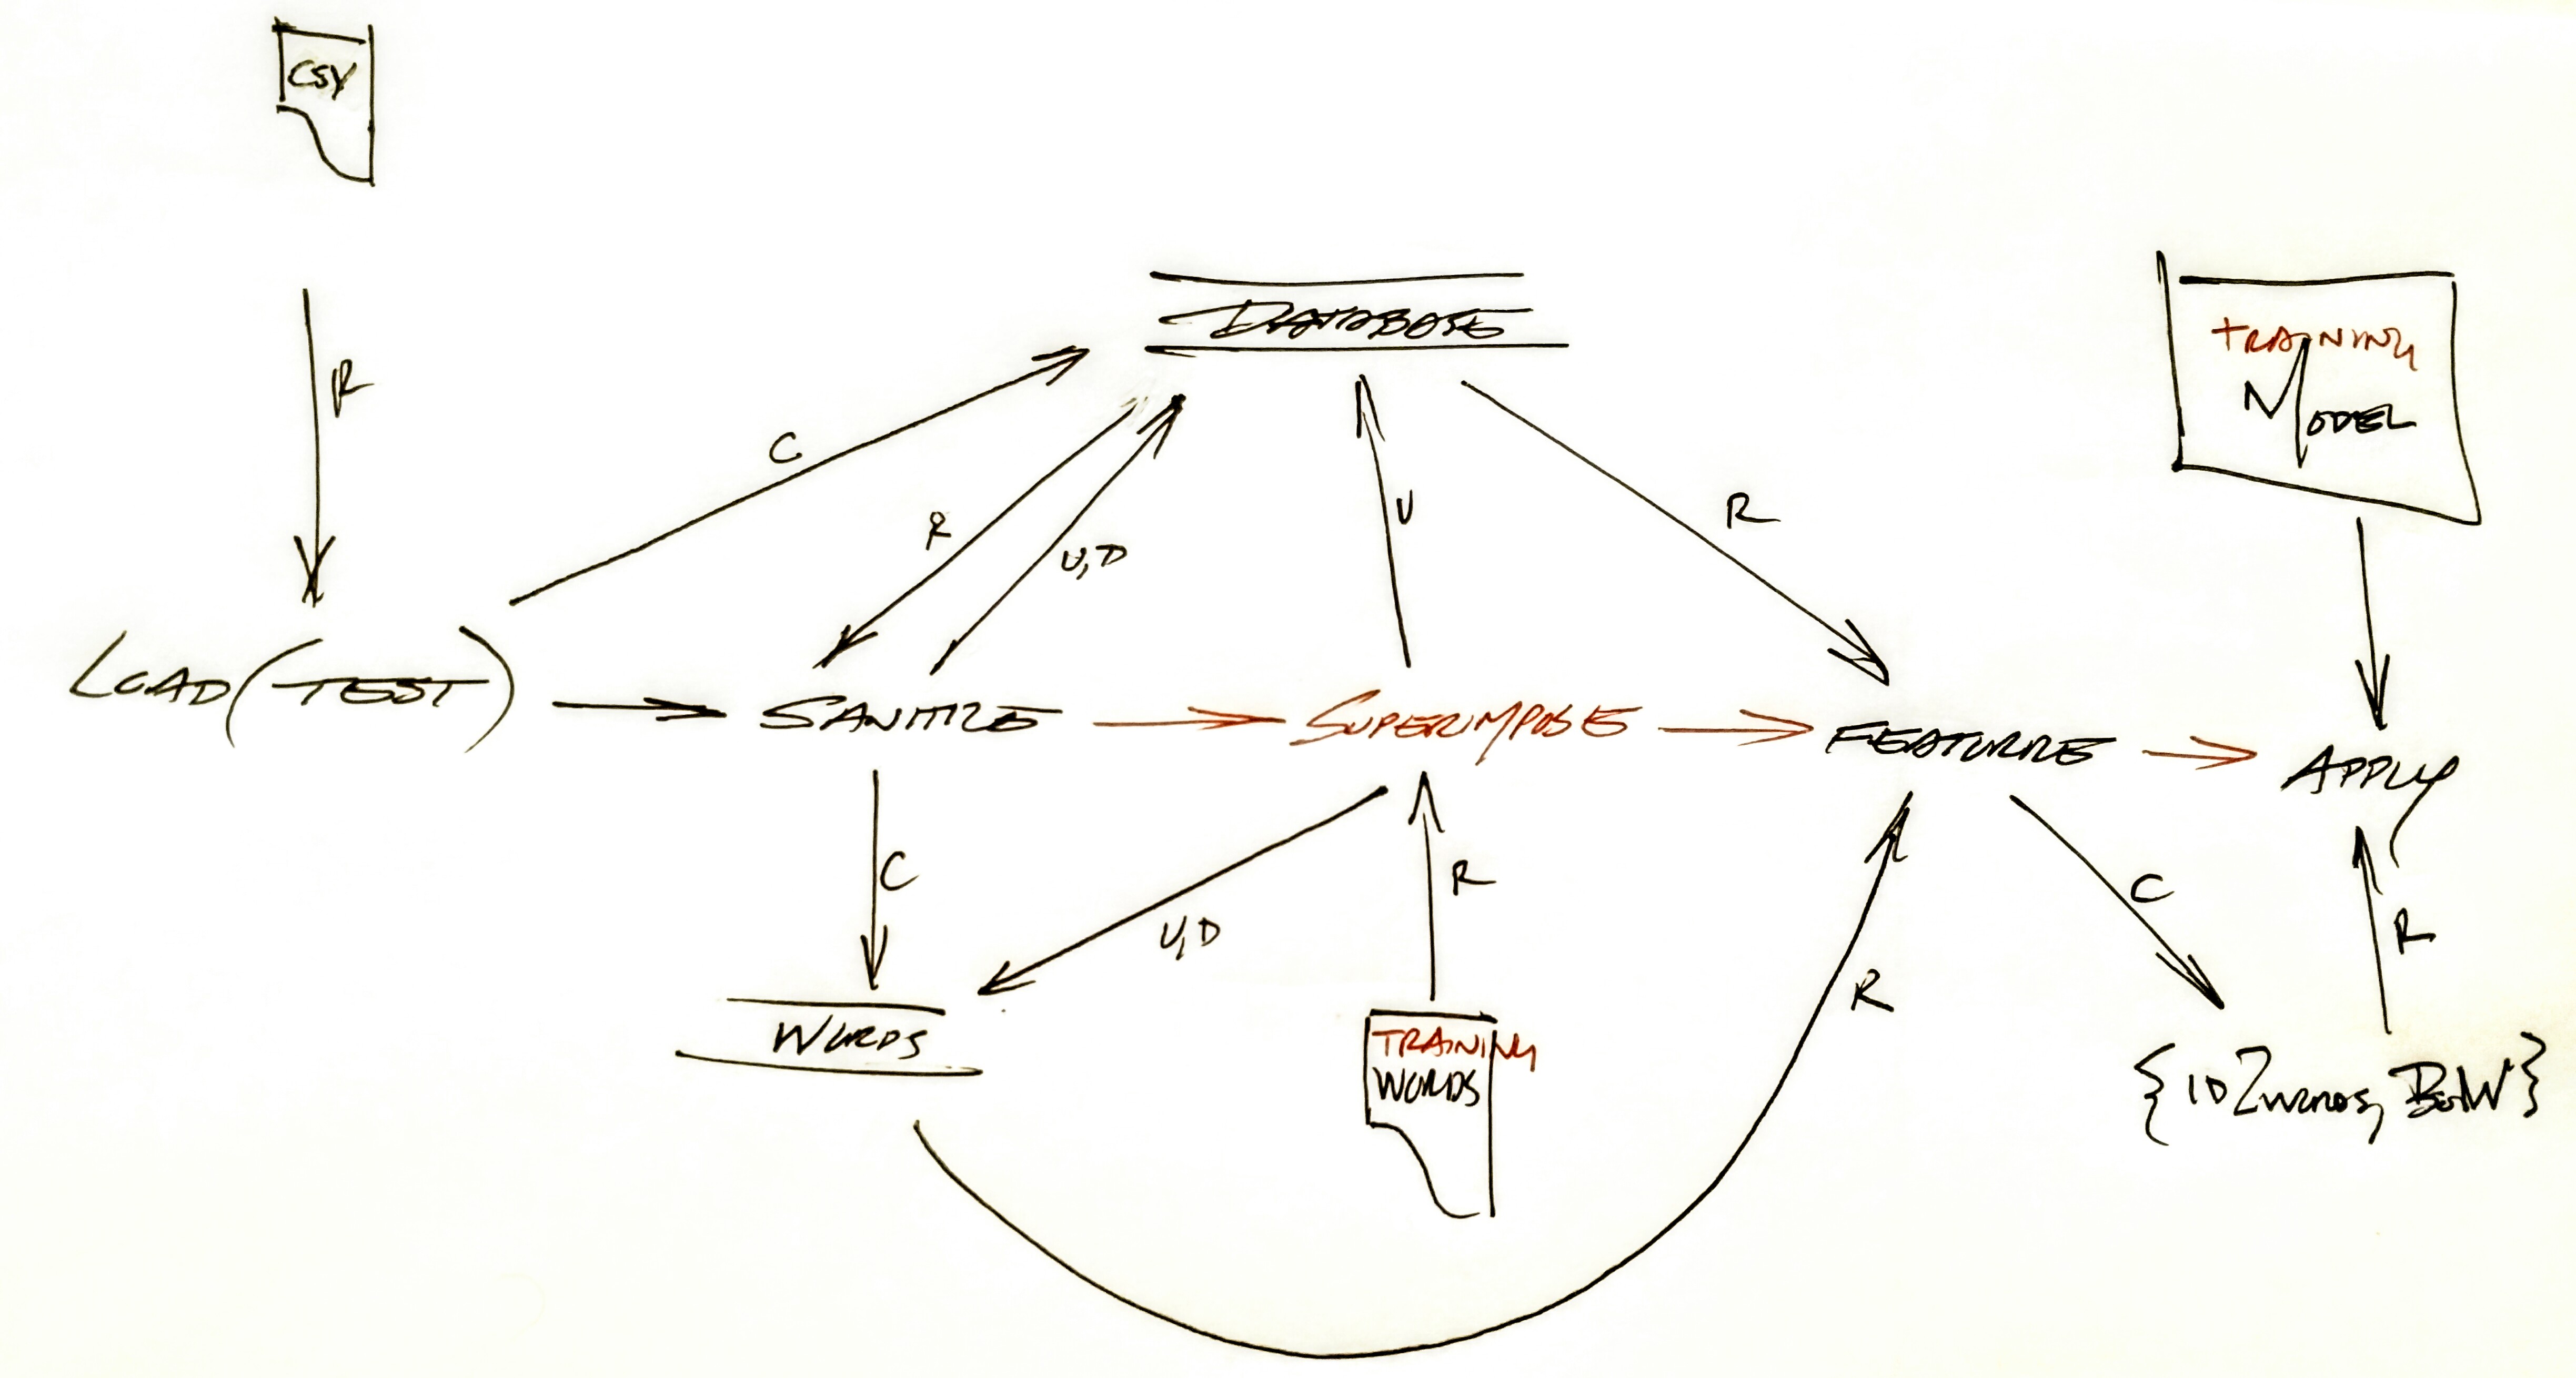 CSV
R
DATABASE
TRAINING
MODEL
C
R
U,D
U
R
LOAD(TEST)
SANITIZE
SUPERIMPOSE
FEATURRE
APPLY
C
U,D
R
R
C
R
WORDS
TRAINING
WORDS
{ID2WORDS, BOW}